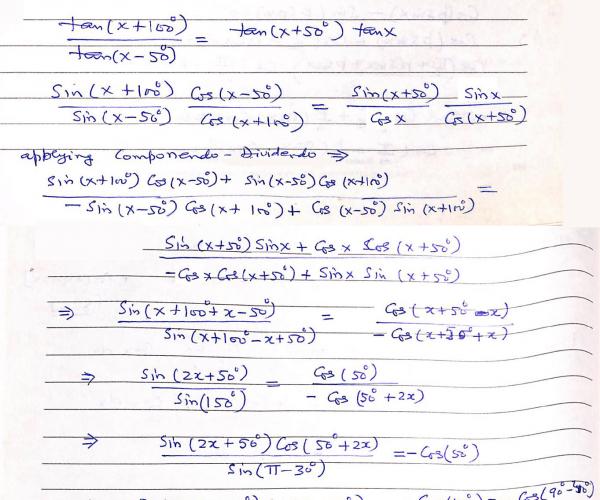 tan(x+100°) / tan(x-50°) = tan(x+50°) tanx
Sin(x+100°) / Sin(x-50°) Cos(x-50°) / Cos(x+100°) = Sin(x+50°) / Cosx Sinx / Cos(x+50°)
applying Componendo-Dividendo ⇒
Sin(x+100°) Cos(x-50°) + Sin(x-50°) Cos(x+100°) / -Sin(x-50°) Cos(x+100°) + Cos(x-50°) Sin(x+100°) =
Sin(x+50°) Sinx + Cosx Cos(x+50°) / -Cosx Cos(x+50°) + Sinx Sin(x+50°)
⇒ Sin(x+100°+x-50°) / Sin(x+100°-x+50°) = Cos(x+50°-x) / -Cos(x+50°+x)
⇒ Sin(2x+50°) / Sin(150°) = Cos(50°) / -Cos(50°+2x)
⇒ Sin(2x+50°) Cos(50°+2x) / Sin(π-30°) = -Cos(50°)